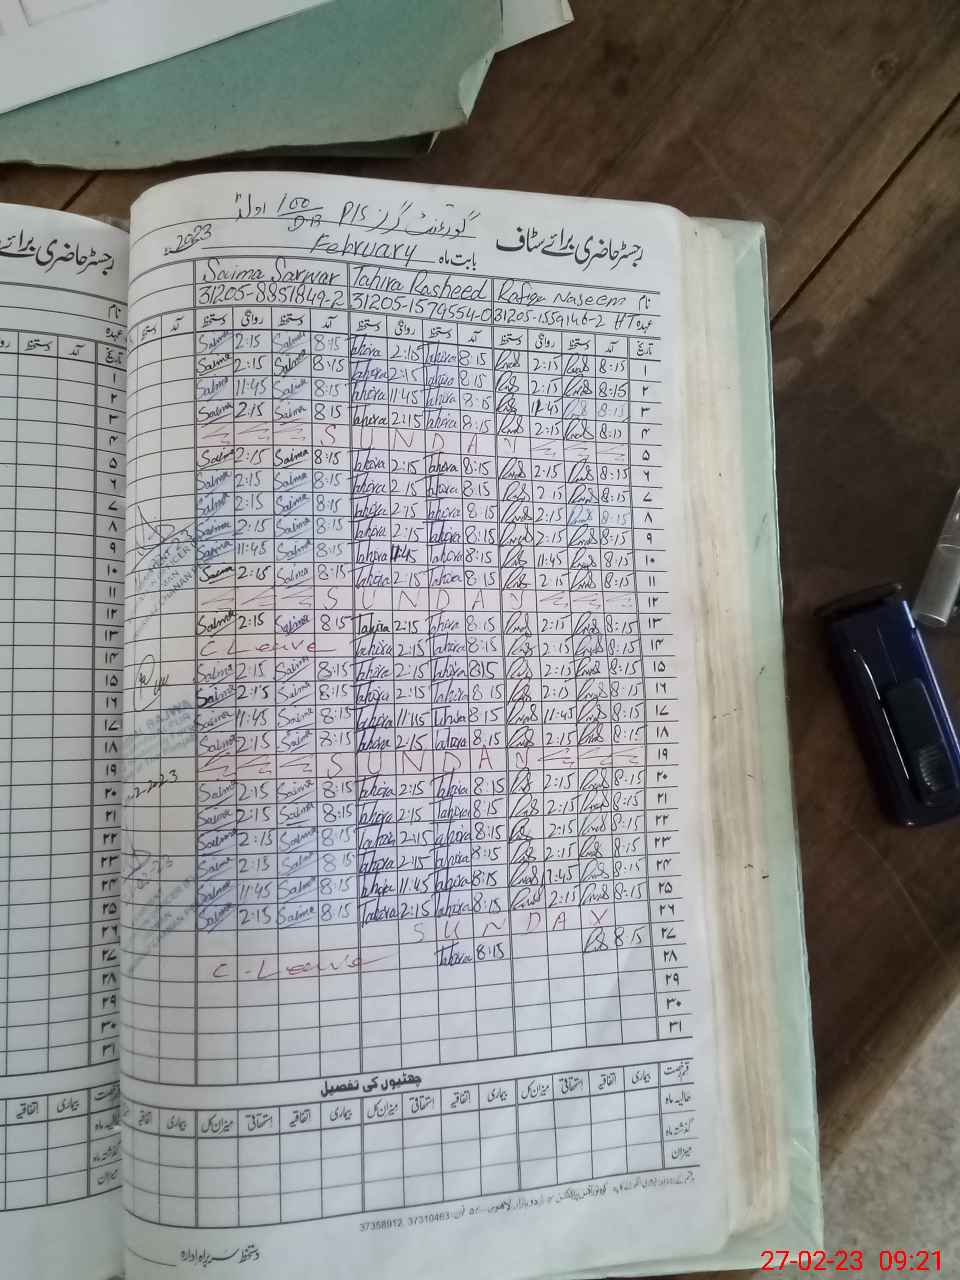 گورنمنٹ گرلز P/S 100/DB اولڈ
رجسٹر حاضری برائے سٹاف
بابت ماہ February 2023
نام Rafiqa Naseem Tahira Rasheed Saima Sarwar
عہدہ HT 31205-1559146-2 31205-1579554-0 31205-8851849-2
تاریخ آمد دستخط روانگی دستخط آمد دستخط روانگی دستخط آمد دستخط روانگی دستخط
۱ 8:15 2:15 8:15 Tahira 2:15 Tahira 8:15 Saima 2:15 Saima
۲ 8:15 2:15 8:15 Tahira 2:15 Tahira 8:15 Saima 2:15 Saima
۳ 8:15 11:45 8:15 Tahira 11:45 Tahira 8:15 Saima 11:45 Saima
۴ 8:15 2:15 8:15 Tahira 2:15 Tahira 8:15 Saima 2:15 Saima
۵ SUNDAY
۶ 8:15 2:15 8:15 Tahira 2:15 Tahira 8:15 Saima 2:15 Saima
۷ 8:15 2:15 8:15 Tahira 2:15 Tahira 8:15 Saima 2:15 Saima
۸ 8:15 2:15 8:15 Tahira 2:15 Tahira 8:15 Saima 2:15 Saima
۹ 8:15 2:15 8:15 Tahira 2:15 Tahira 8:15 Saima 2:15 Saima
۱۰ 8:15 11:45 8:15 Tahira 11:45 Tahira 8:15 Saima 11:45 Saima
۱۱ 8:15 2:15 8:15 Tahira 2:15 Tahira 8:15 Saima 2:15 Saima
۱۲ SUNDAY
۱۳ 8:15 2:15 8:15 Tahira 2:15 Tahira 8:15 Saima 2:15 Saima
۱۴ 8:15 2:15 8:15 Tahira 2:15 Tahira C Leave
۱۵ 8:15 2:15 8:15 Tahira 2:15 Tahira 8:15 Saima 2:15 Saima
۱۶ 8:15 2:15 8:15 Tahira 2:15 Tahira 8:15 Saima 2:15 Saima
۱۷ 8:15 11:45 8:15 Tahira 11:45 Tahira 8:15 Saima 11:45 Saima
۱۸ 8:15 2:15 8:15 Tahira 2:15 Tahira 8:15 Saima 2:15 Saima
۱۹ SUNDAY
۲۰ 8:15 2:15 8:15 Tahira 2:15 Tahira 8:15 Saima 2:15 Saima
۲۱ 8:15 2:15 8:15 Tahira 2:15 Tahira 8:15 Saima 2:15 Saima
۲۲ 8:15 2:15 8:15 Tahira 2:15 Tahira 8:15 Saima 2:15 Saima
۲۳ 8:15 2:15 8:15 Tahira 2:15 Tahira 8:15 Saima 2:15 Saima
۲۴ 8:15 11:45 8:15 Tahira 11:45 Tahira 8:15 Saima 11:45 Saima
۲۵ 8:15 2:15 8:15 Tahira 2:15 Tahira 8:15 Saima 2:15 Saima
۲۶ SUNDAY
۲۷ 8:15 8:15 Tahira C-Leave
۲۸
۲۹
۳۰
۳۱
چھٹیوں کی تفصیل
قسم رخصت بیماری اتفاقیہ استحقاقی میزان کل بیماری اتفاقیہ استحقاقی میزان کل بیماری اتفاقیہ استحقاقی میزان کل
حالیہ ماہ
گذشتہ ماہ
میزان
37358912, 37310463
دستخط سربراہ ادارہ
رجسٹر حاضری برائے
نام
عہدہ
تاریخ آمد دستخط
۱
۲
۳
۴
۵
۶
۷
۸
۹
۱۰
۱۱
۱۲
۱۳
۱۴
۱۵
۱۶
۱۷
۱۸
۱۹
۲۰
۲۱
۲۲
۲۳
۲۴
۲۵
۲۶
۲۷
۲۸
۲۹
۳۰
۳۱
بیماری اتفاقیہ
حالیہ ماہ
گذشتہ ماہ
میزان
BAJWA
27-02-23 09:21